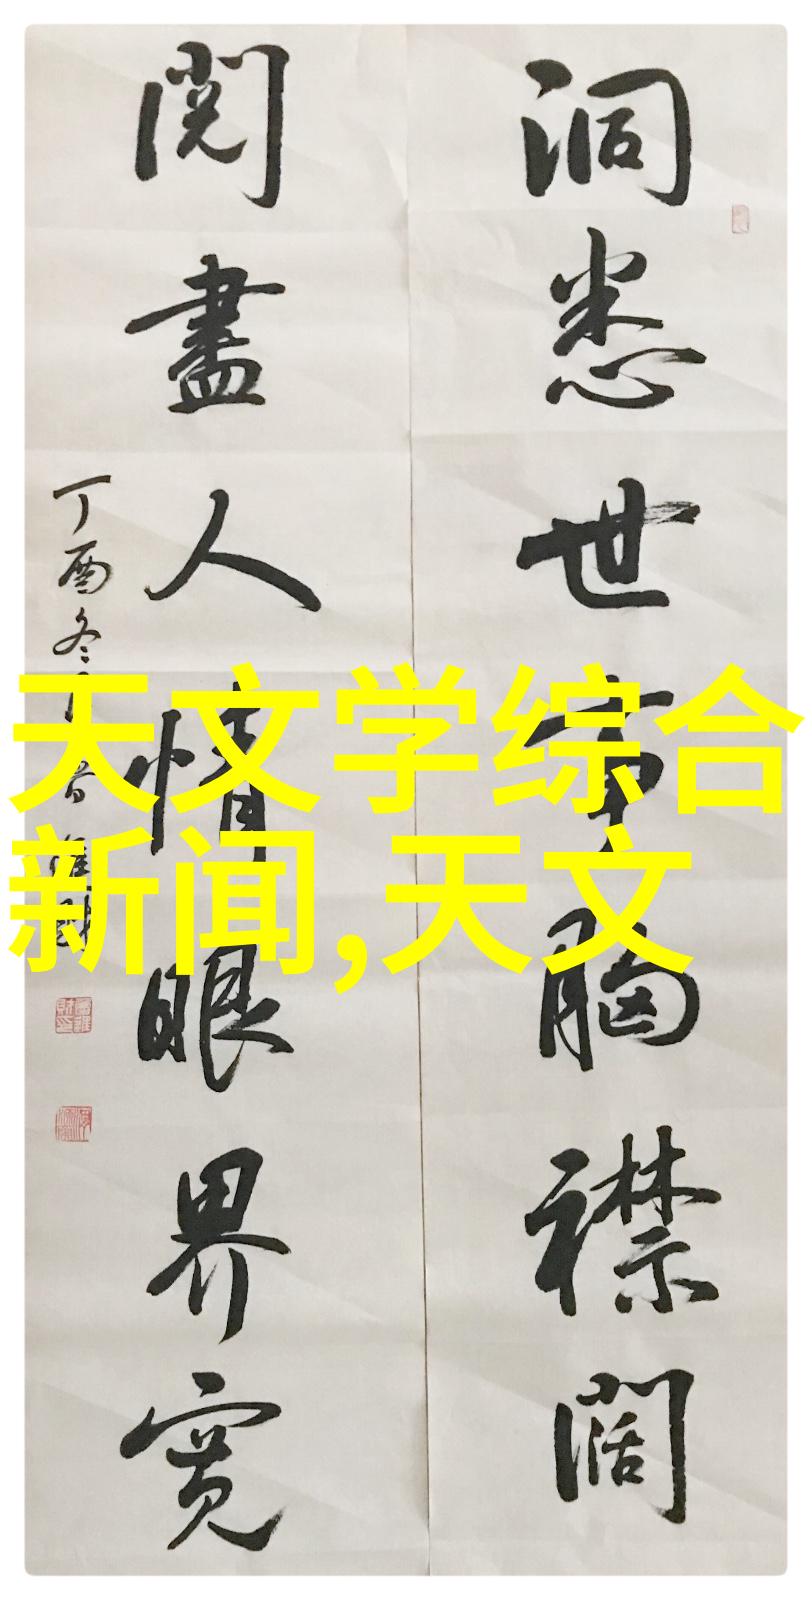 洞悉世事胸襟阔
阅尽人情眼界宽
丁酉冬
天文学综合
新闻,天文